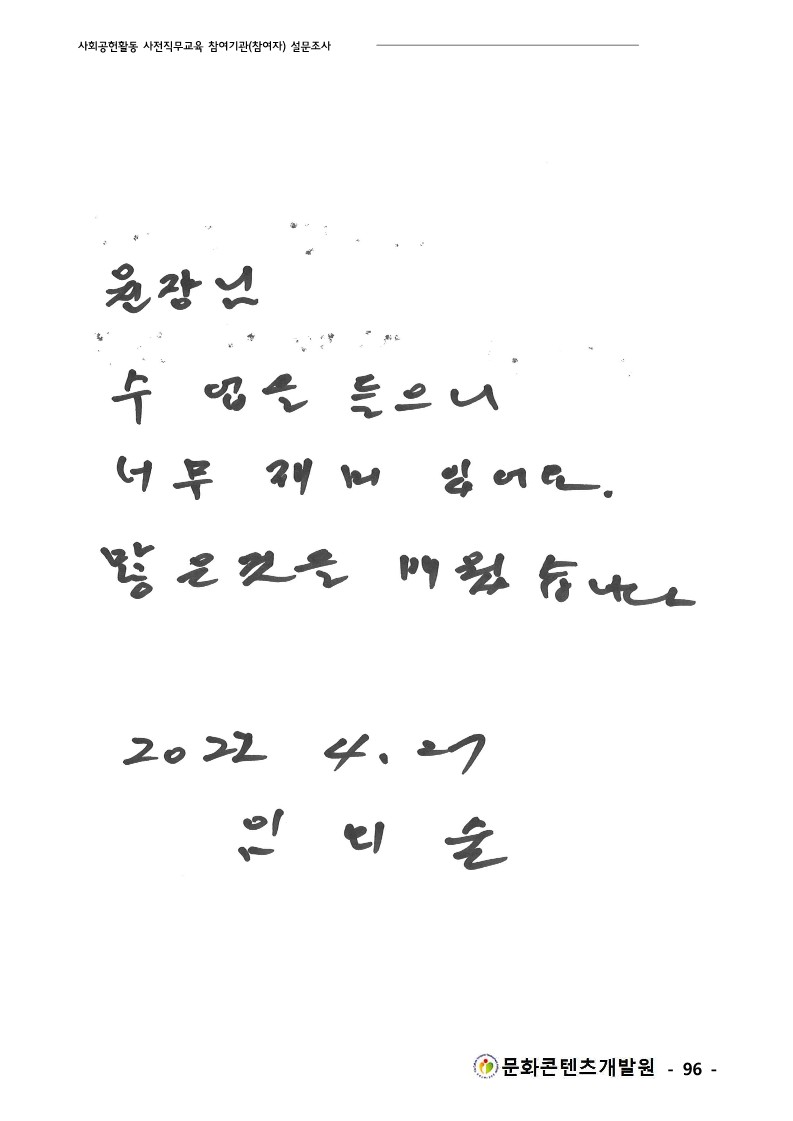 사회공헌활동 사전직무교육 참여기관(참여자) 설문조사
원장님
수 업을 들으니
너무 재미 있어요.
많은것을 배웠습니다
2022 4. 27
임 술
문화콘텐츠개발원 - 96 -